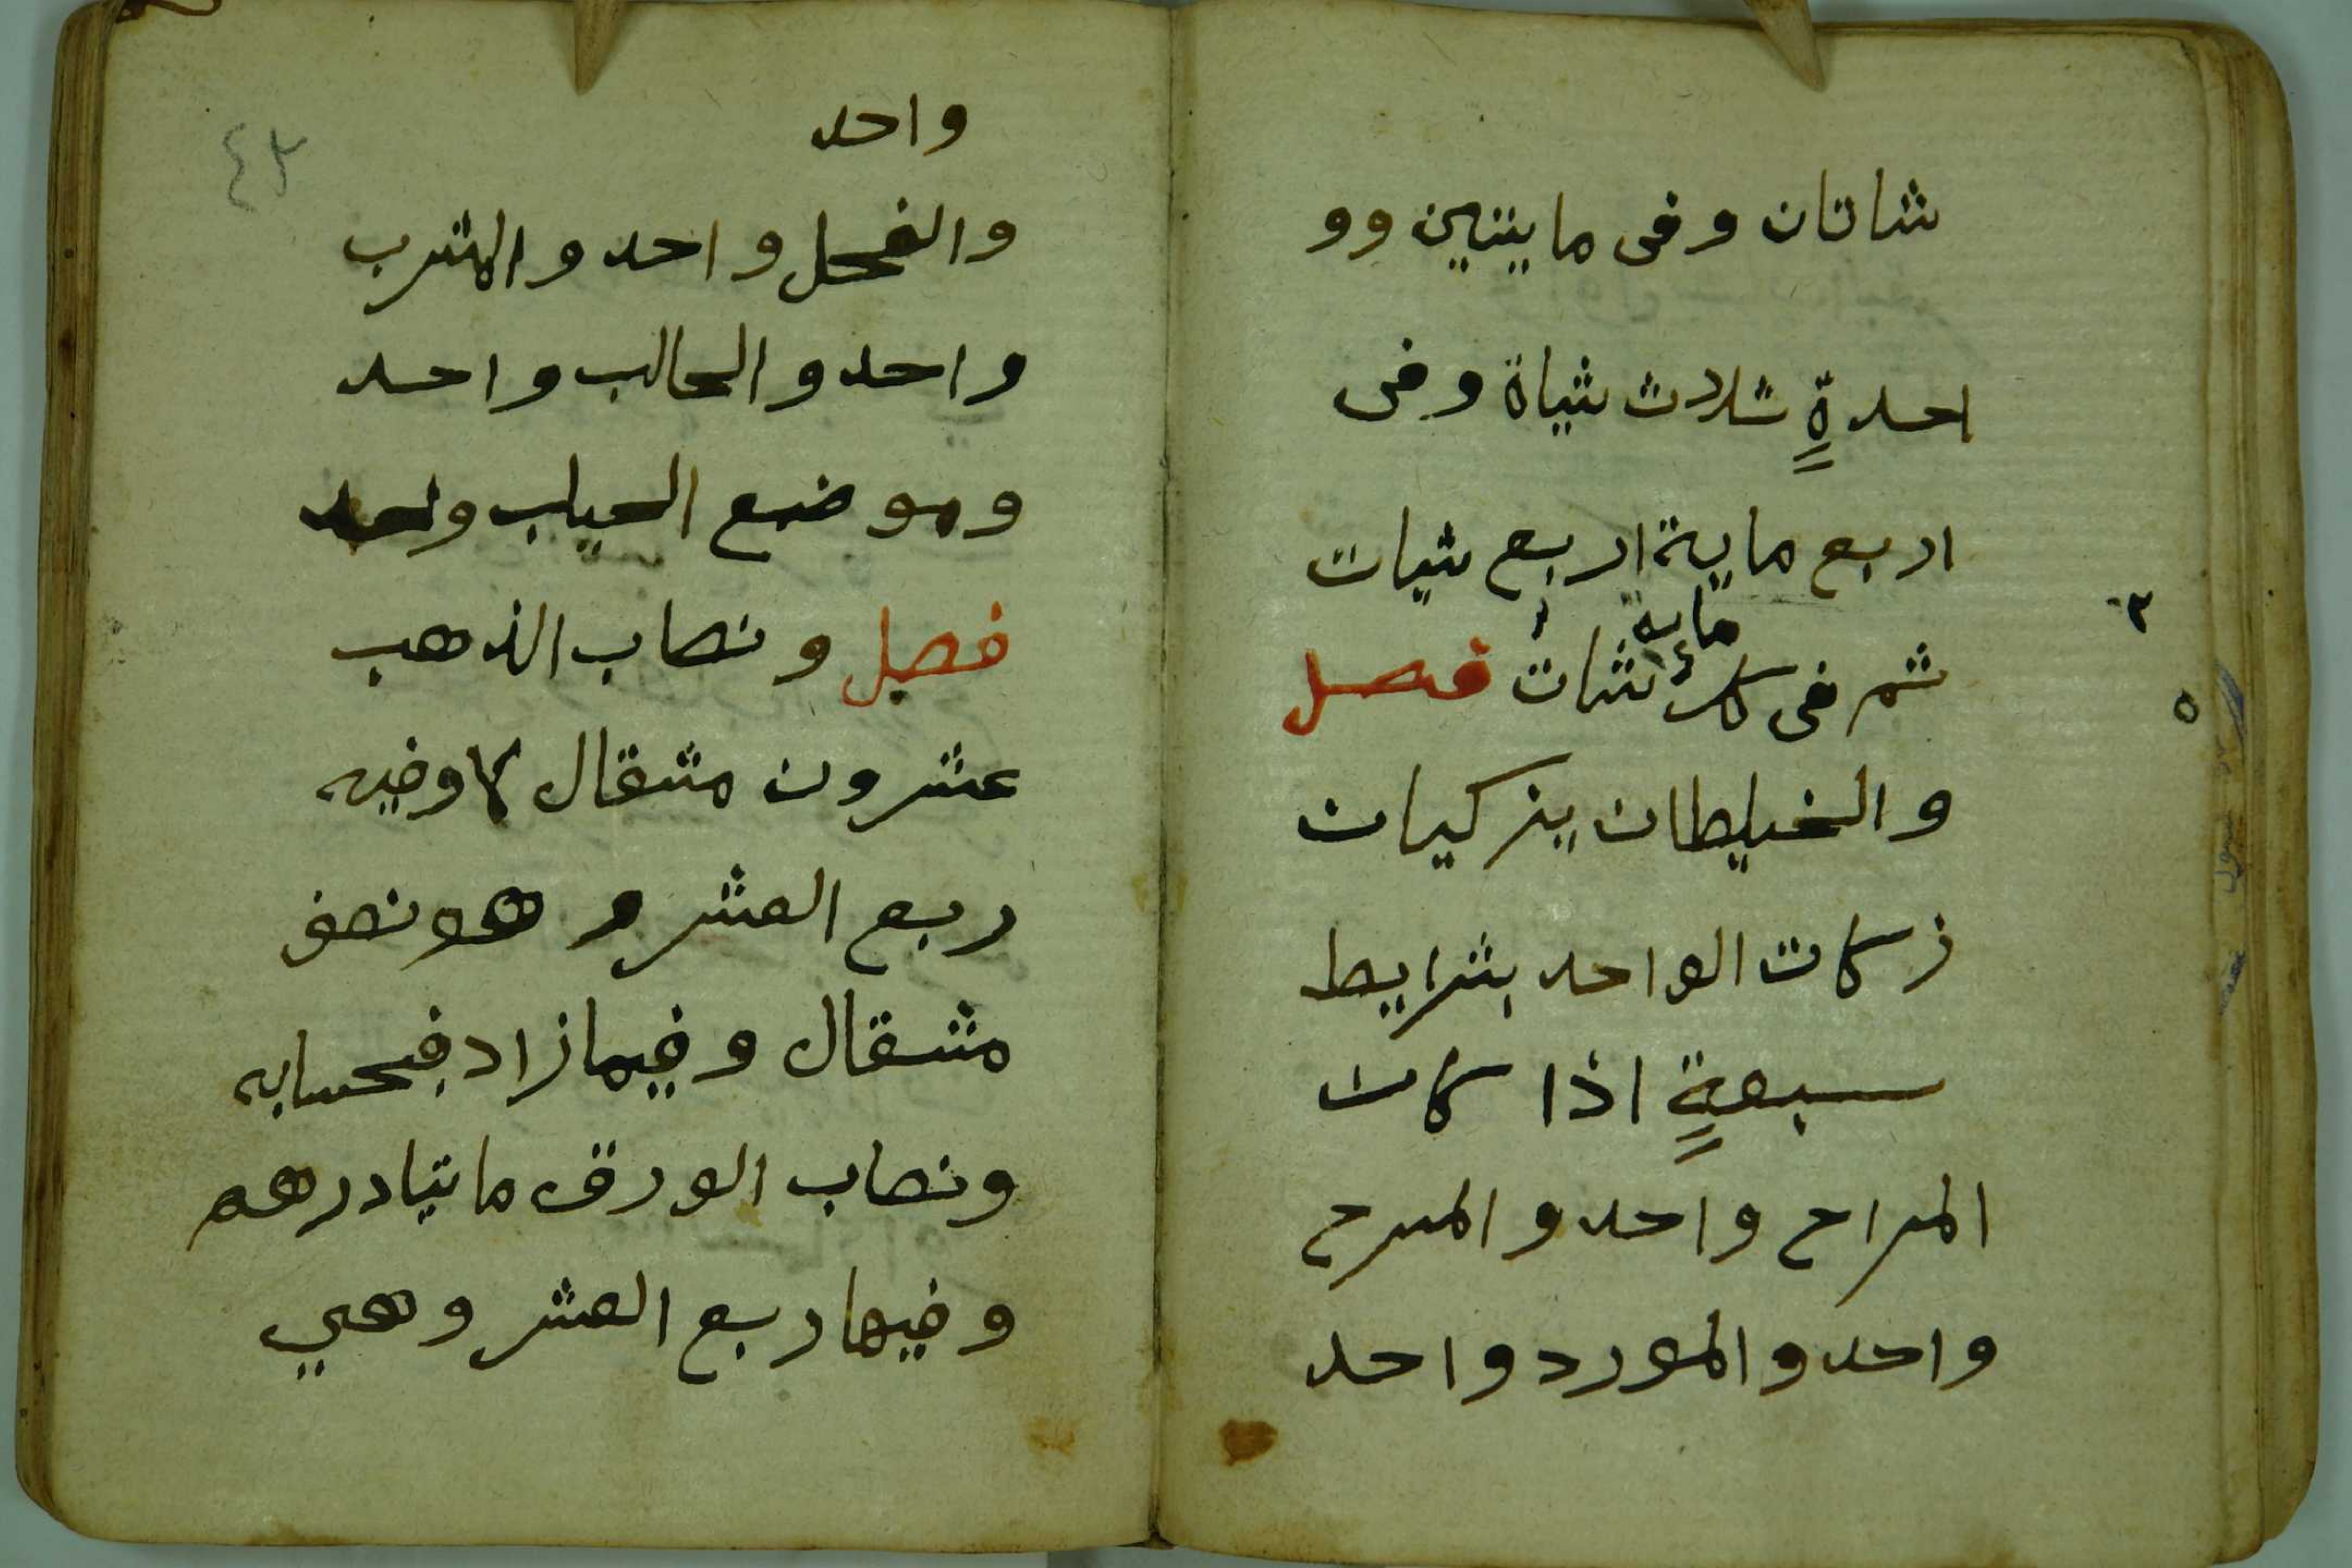 شاتان وفى مايتين وو
احدةٍ ثلاث شياة وفى
اربع ماية اربع شيات
ماية
ثم فى كل شات فصل
والخليطان يزكيان
زكات الواحد بشرايط
سبعةٍ اذا كان
المراح واحد والمسرح
واحد والمورد واحد
واحد
والفحل واحد والمشرب
واحد والحالب واحد
وموضع الحلب واحد
فصل ونصاب الذهب
عشرون مثقالا وفيه
ربع العشر وهو نصف
مثقال وفيما زاد فبحسابه
ونصاب الورق مايتا درهم
وفيها ربع العشر وهي
٤٣